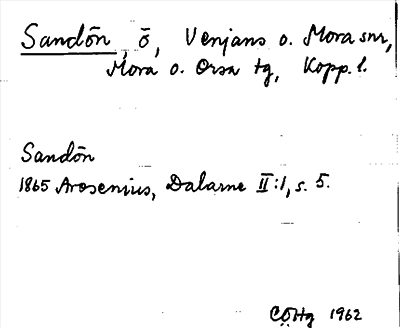 Sandön, ö, Venjans o. Mora snr,
Mora o. Orsa tg, Kopp. l.
Sandön
1865 Arosenius, Dalarne II:1, s. 5.
CÖHg 1962